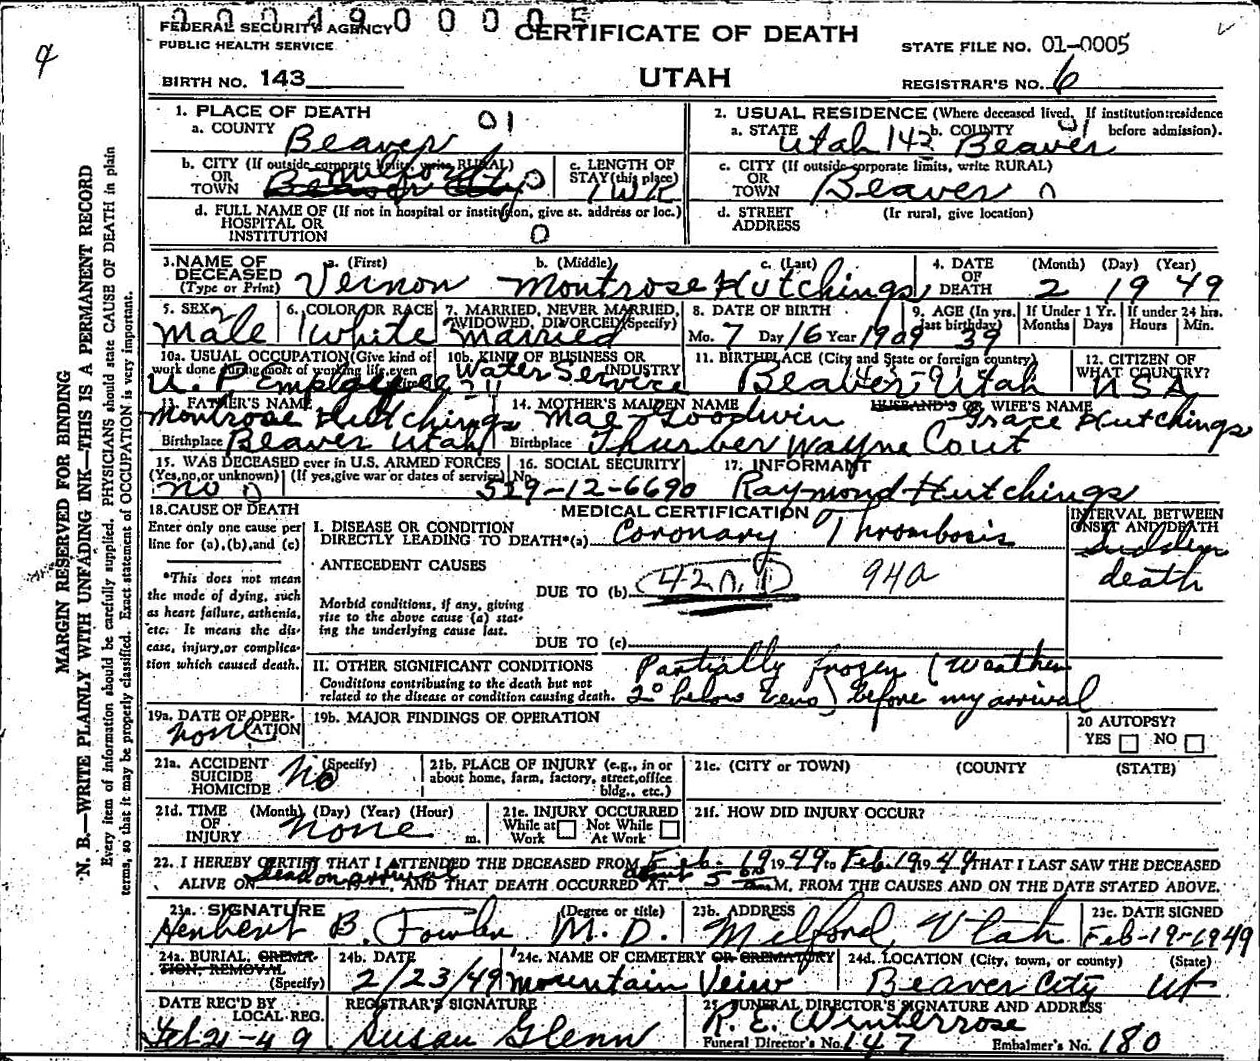 0004900005
FEDERAL SECURITY AGENCY
PUBLIC HEALTH SERVICE
CERTIFICATE OF DEATH
STATE FILE NO. 01-0005
BIRTH NO. 143
UTAH
REGISTRAR'S NO. 6
MARGIN RESERVED FOR BINDING
N. B.—WRITE PLAINLY WITH UNFADING INK—THIS IS A PERMANENT RECORD
Every item of information should be carefully supplied. PHYSICIANS should state CAUSE OF DEATH in plain
terms, so that it may be properly classified. Exact statement of OCCUPATION is very important.
1. PLACE OF DEATH
a. COUNTY Beaver 01
2. USUAL RESIDENCE (Where deceased lived. If institution: residence before admission).
a. STATE Utah 142 b. COUNTY Beaver 01
b. CITY (If outside corporate limits, write RURAL) OR TOWN Beaver City Milford 0
c. LENGTH OF STAY (this place) 1 WK
c. CITY (If outside corporate limits, write RURAL) OR TOWN Beaver 0
d. FULL NAME OF (If not in hospital or institution, give st. address or loc.) HOSPITAL OR INSTITUTION 0
d. STREET ADDRESS (If rural, give location)
3. NAME OF DECEASED (Type or Print) a. (First) Vernon b. (Middle) Montrose c. (Last) Hutchings
4. DATE OF DEATH (Month) (Day) (Year) 2 19 49
5. SEX 2 Male
6. COLOR OR RACE 1 white
7. MARRIED, NEVER MARRIED, WIDOWED, DIVORCED (Specify) Married
8. DATE OF BIRTH Mo. 7 Day 16 Year 1909
9. AGE (In yrs. last birthday) 39
If Under 1 Yr. Months Days
If under 24 hrs. Hours Min.
10a. USUAL OCCUPATION (Give kind of work done during most of working life, even U. P. Employee
10b. KIND OF BUSINESS OR INDUSTRY Water Service
11. BIRTHPLACE (City and State or foreign country) Beaver Utah
12. CITIZEN OF WHAT COUNTRY? USA
13. FATHER'S NAME Montrose Hutchings
14. MOTHER'S MAIDEN NAME Mae Goodwin
HUSBAND'S OR WIFE'S NAME Grace Hutchings
Birthplace Beaver Utah
Birthplace Thurber Wayne Cout
15. WAS DECEASED ever in U.S. ARMED FORCES (Yes, no, or unknown) (If yes, give war or dates of service) no 0
16. SOCIAL SECURITY No. 529-12-6690
17. INFORMANT Raymond Hutchings
18. CAUSE OF DEATH
Enter only one cause per line for (a), (b), and (c)
*This does not mean the mode of dying, such as heart failure, asthenia, etc. It means the disease, injury, or complication which caused death.
MEDICAL CERTIFICATION
INTERVAL BETWEEN ONSET AND DEATH
I. DISEASE OR CONDITION DIRECTLY LEADING TO DEATH*(a) Coronary Thrombosis
Sudden death
ANTECEDENT CAUSES
DUE TO (b) 420.1 94a
Morbid conditions, if any, giving rise to the above cause (a) stating the underlying cause last.
DUE TO (c)
II. OTHER SIGNIFICANT CONDITIONS
Conditions contributing to the death but not related to the disease or condition causing death.
Partially frozen (Weather
2° below zero) before my arrival
19a. DATE OF OPERATION none
19b. MAJOR FINDINGS OF OPERATION
20 AUTOPSY? YES NO
21a. ACCIDENT SUICIDE HOMICIDE (Specify) No
21b. PLACE OF INJURY (e.g., in or about home, farm, factory, street, office bldg., etc.)
21c. (CITY or TOWN) (COUNTY) (STATE)
21d. TIME OF INJURY (Month) (Day) (Year) (Hour) m. none
21e. INJURY OCCURRED While at Work Not While At Work
21f. HOW DID INJURY OCCUR?
22. I HEREBY CERTIFY THAT I ATTENDED THE DECEASED FROM Feb - 19 1949 to Feb. 19 1949 THAT I LAST SAW THE DECEASED
ALIVE ON dead on arrival AND THAT DEATH OCCURRED AT about 5 00 am M, FROM THE CAUSES AND ON THE DATE STATED ABOVE.
23a. SIGNATURE (Degree or title) Herbert B. Fowler M.D.
23b. ADDRESS Milford, Utah
23c. DATE SIGNED Feb-19-1949
24a. BURIAL, CREMATION, REMOVAL (Specify)
24b. DATE 2/23/49
24c. NAME OF CEMETERY OR CREMATORY Mountain Veiw
24d. LOCATION (City, town, or county) (State) Beaver City Ut
DATE REC'D BY LOCAL REG. Feb 21-49
REGISTRAR'S SIGNATURE Susan Glenn
25. FUNERAL DIRECTOR'S SIGNATURE AND ADDRESS R. E. Winterrose
Funeral Director's No. 147 Embalmer's No. 180